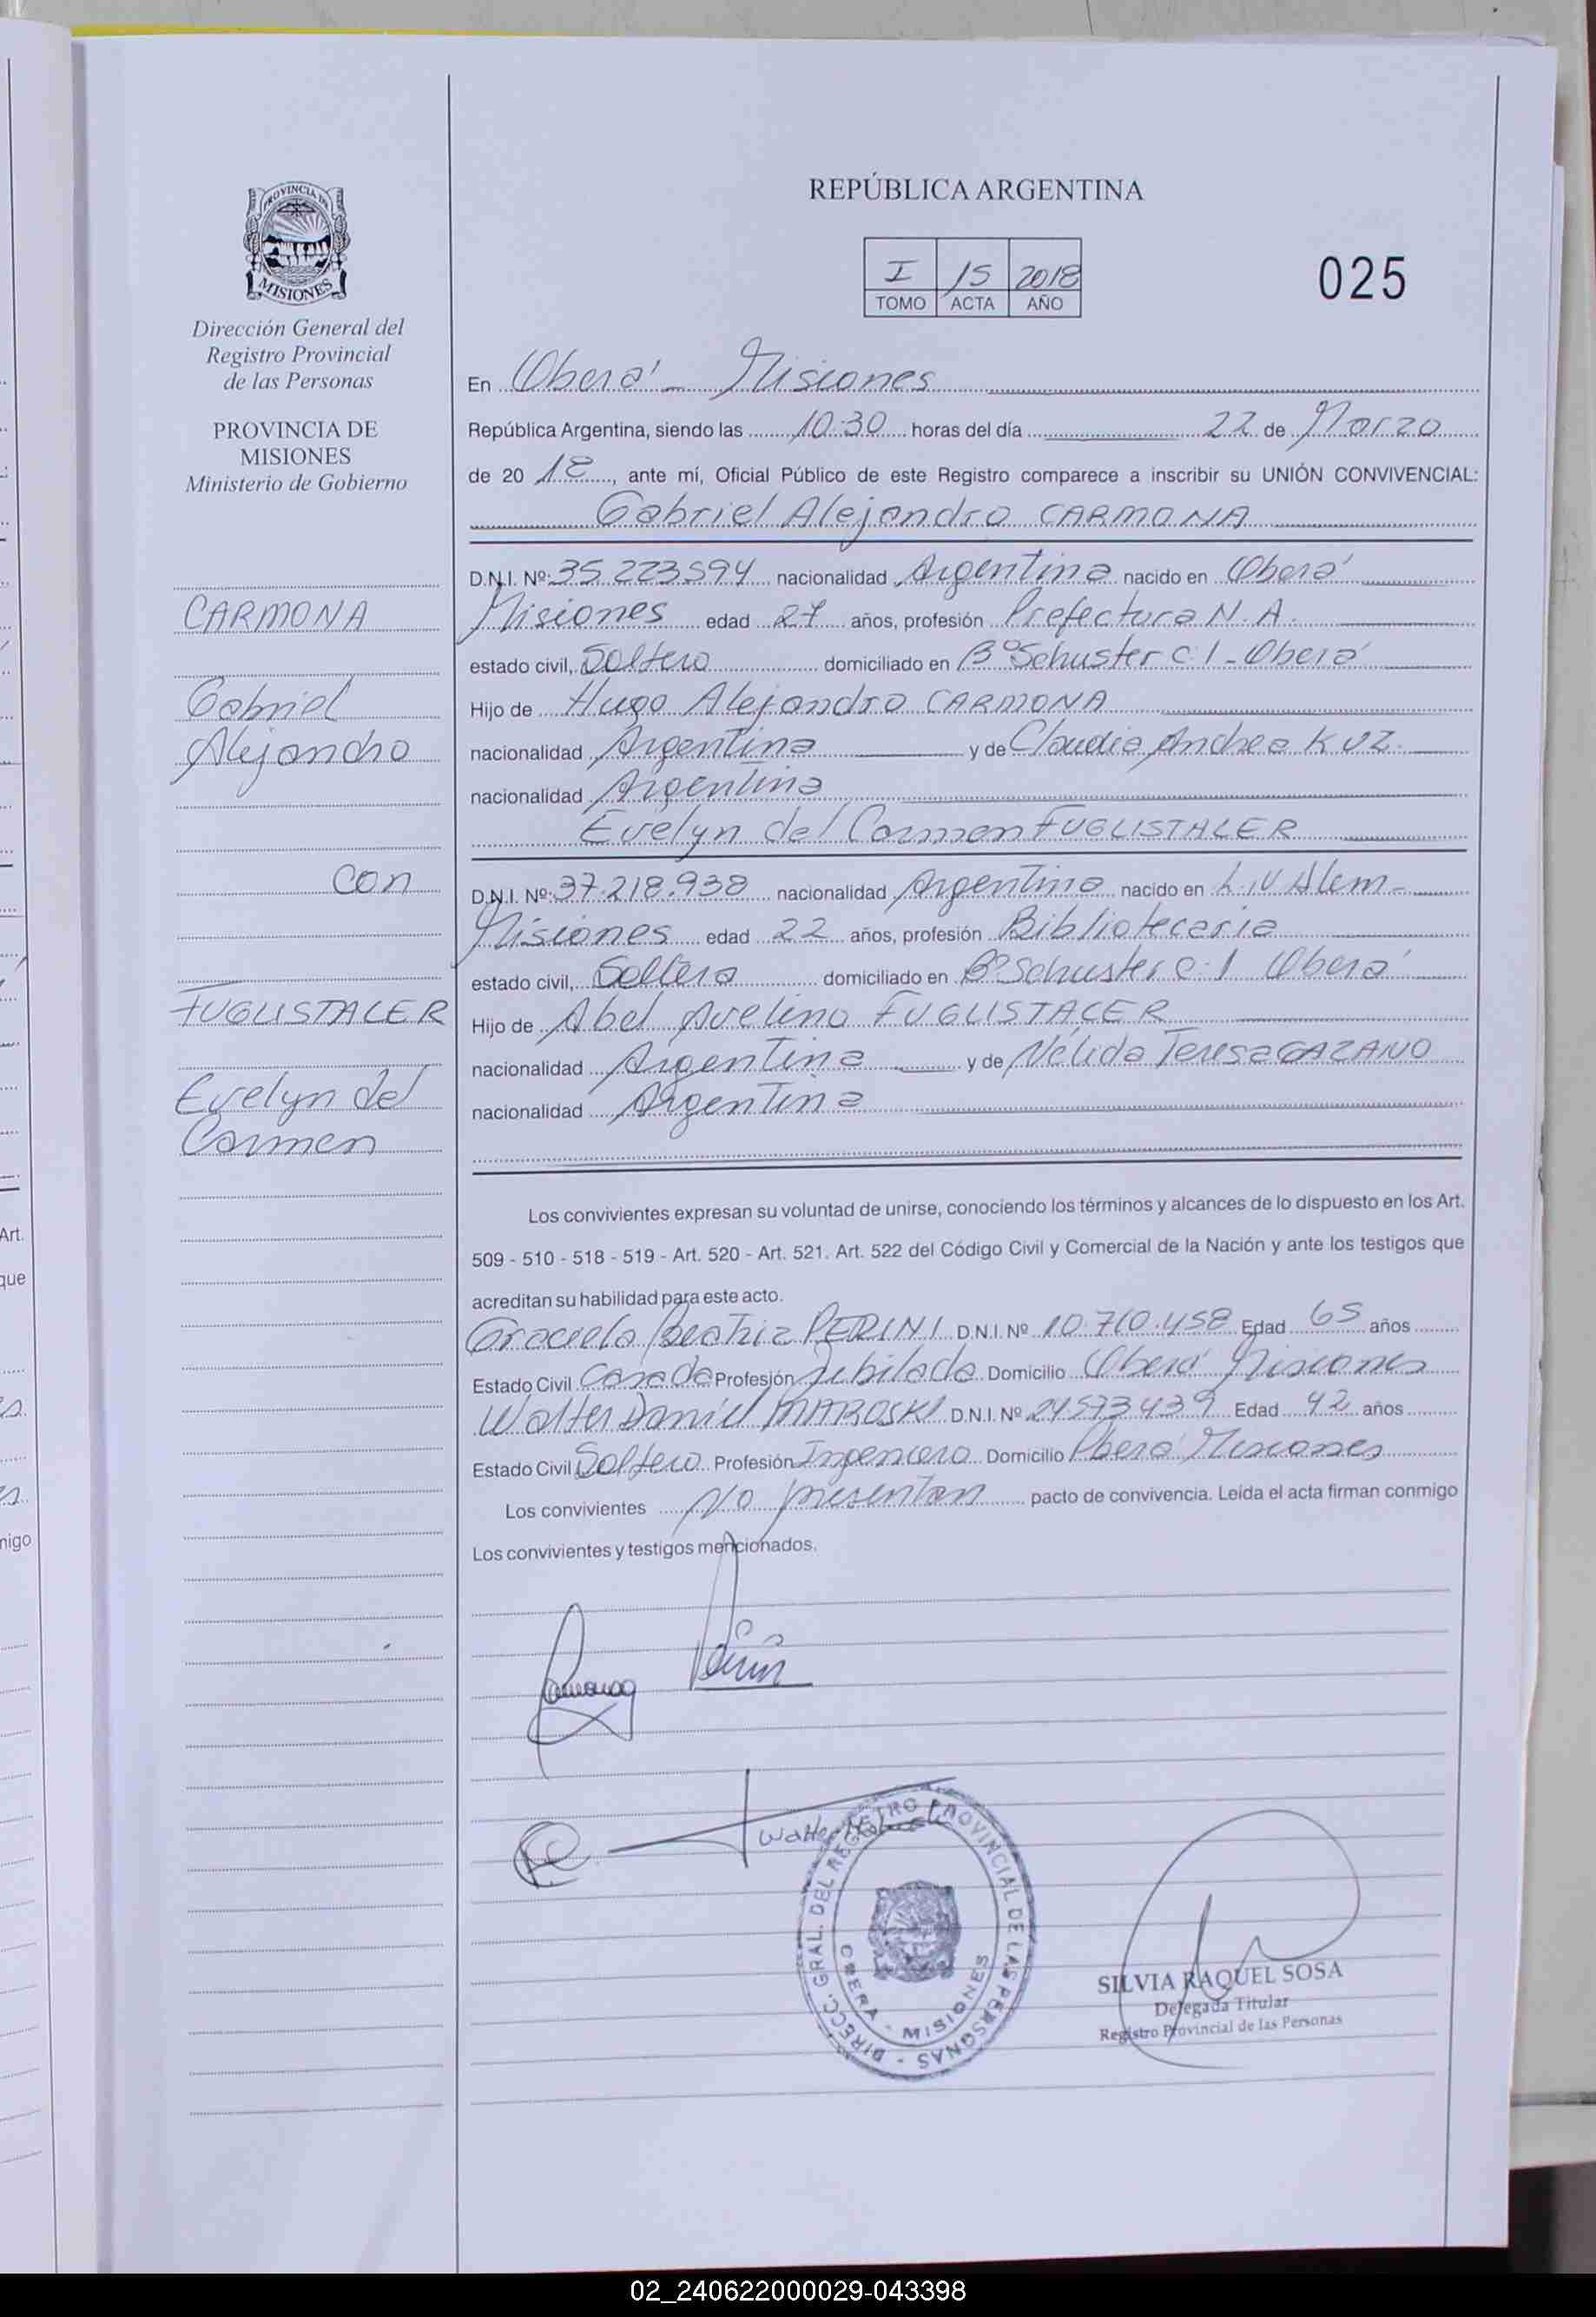 PROVINCIA DE
MISIONES
Dirección General del
Registro Provincial
de las Personas
PROVINCIA DE
MISIONES
Ministerio de Gobierno
CARMONA
Gabriel
Alejandro
con
FUGLISTALER
Evelyn del
Carmen
REPÚBLICA ARGENTINA
I 15 2018
TOMO ACTA AÑO
025
En Oberá - Misiones
República Argentina, siendo las 10:30 horas del día 22 de Marzo
de 20 18, ante mí, Oficial Público de este Registro comparece a inscribir su UNIÓN CONVIVENCIAL:
Gabriel Alejandro CARMONA
D.N.I. Nº: 35.223594 nacionalidad Argentina nacido en Oberá
Misiones edad 27 años, profesión Prefectura N.A.
estado civil, Soltero domiciliado en Bº Schuster c.1 - Oberá
Hijo de Hugo Alejandro CARMONA
nacionalidad Argentina y de Claudia Andrea KUZ
nacionalidad Argentina
Evelyn del Carmen FUGLISTALER
D.N.I. Nº: 37.218.938 nacionalidad Argentina nacido en L.N Alem -
Misiones edad 22 años, profesión Bibliotecaria
estado civil, Soltera domiciliado en Bº Schuster c.1 Oberá
Hijo de Abel Avelino FUGLISTALER
nacionalidad Argentina y de Nélida Teresa
nacionalidad Argentina
Los convivientes expresan su voluntad de unirse, conociendo los términos y alcances de lo dispuesto en los Art.
509 - 510 - 518 - 519 - Art. 520 - Art. 521. Art. 522 del Código Civil y Comercial de la Nación y ante los testigos que
acreditan su habilidad para este acto.
Graciela Beatriz PERINI D.N.I. Nº 10.710.458 Edad 65 años
Estado Civil Casada Profesión Jubilada Domicilio Oberá Misiones
Walter Daniel MAROSKI D.N.I. Nº 24573439 Edad 42 años
Estado Civil Soltero Profesión Ingeniero Domicilio Oberá Misiones
Los convivientes No presentan pacto de convivencia. Leída el acta firman conmigo
Los convivientes y testigos mencionados.
Carmona
Perini
Walter
DIRECC. GRAL. DEL REGISTRO PROVINCIAL DE LAS PERSONAS -
OBERA - MISIONES
SILVIA RAQUEL SOSA
Delegada Titular
Registro Provincial de las Personas
Art.
que
migo
02_240622000029-043398